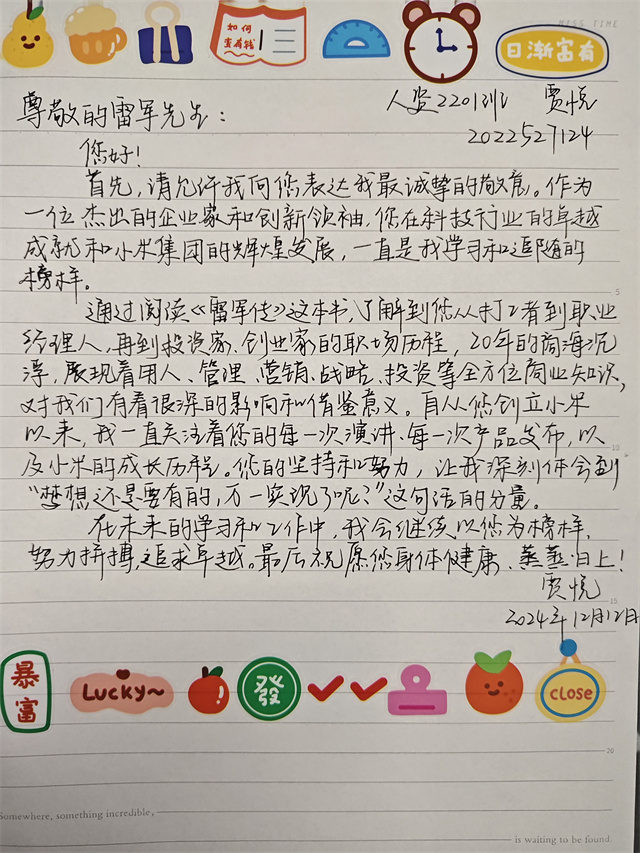 MISS TIME
如何
变有钱
日渐富有
人资2201班 贾悦
2022527124
尊敬的雷军先生：
您好！
首先，请允许我向您表达我最诚挚的敬意。作为
一位杰出的企业家和创新领袖，您在科技行业的卓越
成就和小米集团的辉煌发展，一直是我学习和追随的
榜样。
通过阅读《雷军传》这本书，了解到您从打工者到职业
经理人，再到投资家、创业家的职场历程，20年的商海沉
浮，展现着用人、管理、营销、战略、投资等全方位商业知识，
对我们有着很深的影响和借鉴意义。自从您创立小米
以来，我一直关注着您的每一次演讲、每一次产品发布，以
及小米的成长历程。您的坚持和努力，让我深刻体会到
“梦想还是要有的，万一实现了呢？”这句话的分量。
在未来的学习和工作中，我会继续以您为榜样，
努力拼搏，追求卓越。最后祝愿您身体健康、蒸蒸日上！
贾悦
2024年12月12日
暴富
Lucky~
發
CLOSE
5
10
15
20
Somewhere, something incredible,
is waiting to be found